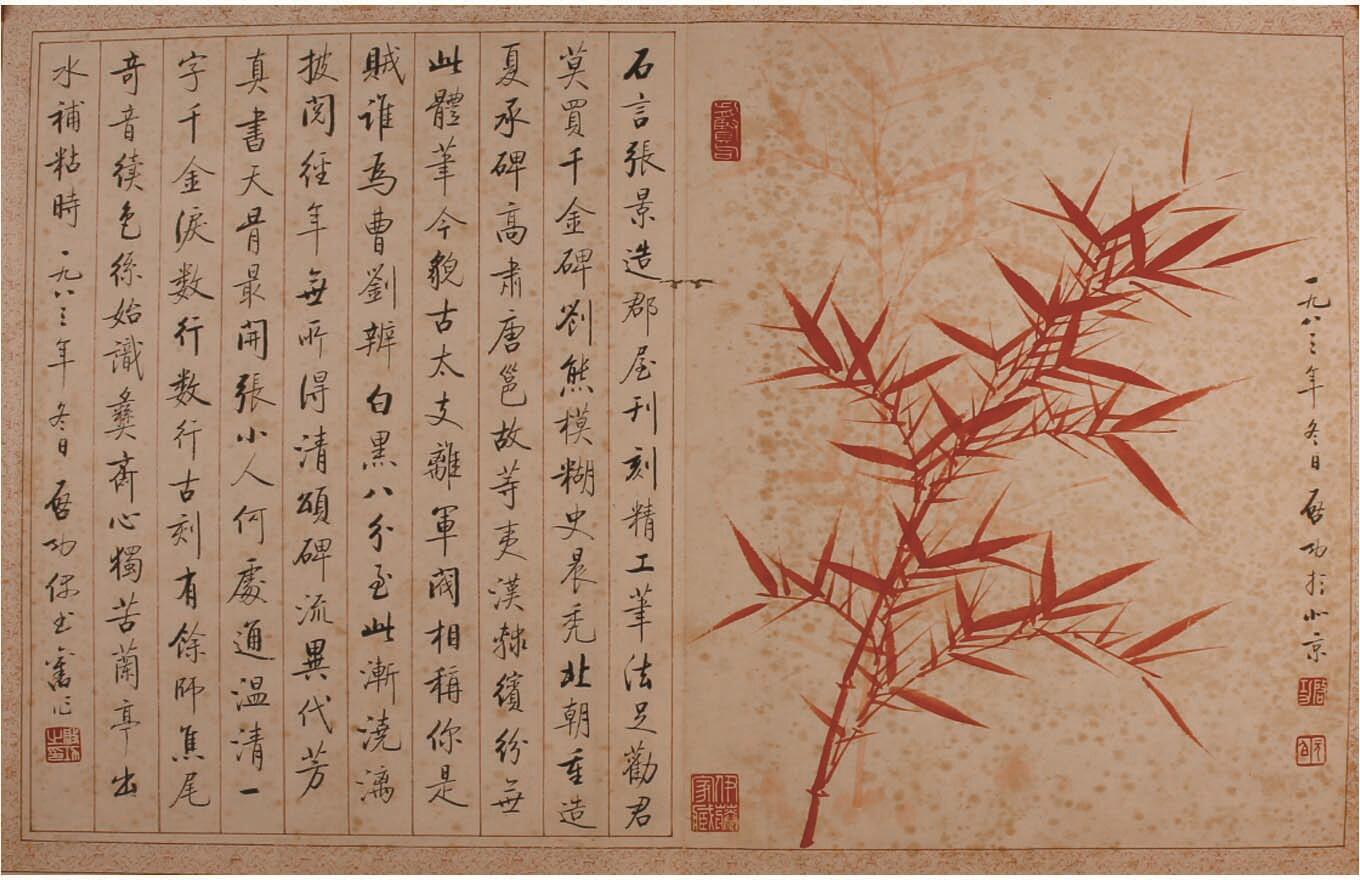 一九八三年冬日启功於北京
石言張景造郡屋刊刻精工筆法足勸君
莫買千金碑劉熊模糊史晨禿北朝重造
夏承碑高肅唐邕故等夷漢隸繽紛無
此體筆今貌古太支離軍閥相稱你是
賊誰為曹劉辨白黑八分至此漸澆漓
披閱經年無所得清頌碑流異代芳
真書天骨最開張小人何處通温清一
字千金淚数行数行古刻有餘師焦尾
奇音續色絲始識彝齋心獨苦蘭亭出
水補粘時一九八三年冬日启功偶书舊作
伊藤家藏